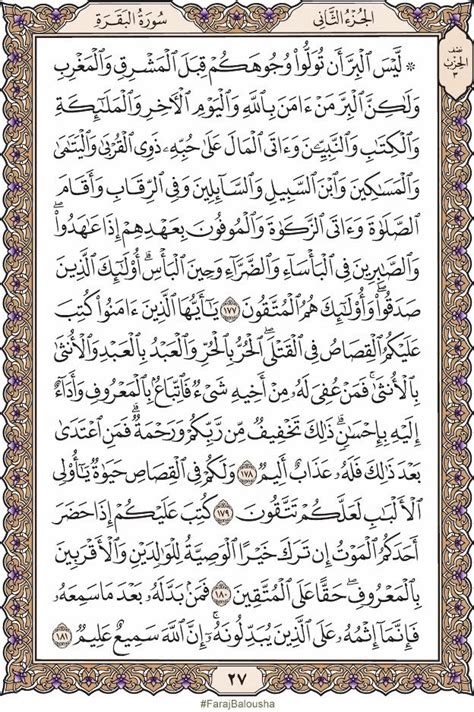 الجزء الثاني
سورة البقرة
نصف
الحزب
٣
۞ لَّيْسَ ٱلْبِرَّ أَن تُوَلُّوا۟ وُجُوهَكُمْ قِبَلَ ٱلْمَشْرِقِ وَٱلْمَغْرِبِ
وَلَـٰكِنَّ ٱلْبِرَّ مَنْ ءَامَنَ بِٱللَّهِ وَٱلْيَوْمِ ٱلْـَٔاخِرِ وَٱلْمَلَـٰٓئِكَةِ
وَٱلْكِتَـٰبِ وَٱلنَّبِيِّـۧنَ وَءَاتَى ٱلْمَالَ عَلَىٰ حُبِّهِۦ ذَوِى ٱلْقُرْبَىٰ وَٱلْيَتَـٰمَىٰ
وَٱلْمَسَـٰكِينَ وَٱبْنَ ٱلسَّبِيلِ وَٱلسَّآئِلِينَ وَفِى ٱلرِّقَابِ وَأَقَامَ
ٱلصَّلَوٰةَ وَءَاتَى ٱلزَّكَوٰةَ وَٱلْمُوفُونَ بِعَهْدِهِمْ إِذَا عَـٰهَدُوا۟ ۖ
وَٱلصَّـٰبِرِينَ فِى ٱلْبَأْسَآءِ وَٱلضَّرَّآءِ وَحِينَ ٱلْبَأْسِ ۗ أُو۟لَـٰٓئِكَ ٱلَّذِينَ
صَدَقُوا۟ ۖ وَأُو۟لَـٰٓئِكَ هُمُ ٱلْمُتَّقُونَ ١٧٧ يَـٰٓأَيُّهَا ٱلَّذِينَ ءَامَنُوا۟ كُتِبَ
عَلَيْكُمُ ٱلْقِصَاصُ فِى ٱلْقَتْلَى ۖ ٱلْحُرُّ بِٱلْحُرِّ وَٱلْعَبْدُ بِٱلْعَبْدِ وَٱلْأُنثَىٰ
بِٱلْأُنثَىٰ ۚ فَمَنْ عُفِىَ لَهُۥ مِنْ أَخِيهِ شَىْءٌ فَٱتِّبَاعٌۢ بِٱلْمَعْرُوفِ وَأَدَآءٌ
إِلَيْهِ بِإِحْسَـٰنٍ ۗ ذَٰلِكَ تَخْفِيفٌ مِّن رَّبِّكُمْ وَرَحْمَةٌ ۗ فَمَنِ ٱعْتَدَىٰ
بَعْدَ ذَٰلِكَ فَلَهُۥ عَذَابٌ أَلِيمٌ ١٧٨ وَلَكُمْ فِى ٱلْقِصَاصِ حَيَوٰةٌ يَـٰٓأُو۟لِى
ٱلْأَلْبَـٰبِ لَعَلَّكُمْ تَتَّقُونَ ١٧٩ كُتِبَ عَلَيْكُمْ إِذَا حَضَرَ
أَحَدَكُمُ ٱلْمَوْتُ إِن تَرَكَ خَيْرًا ٱلْوَصِيَّةُ لِلْوَٰلِدَيْنِ وَٱلْأَقْرَبِينَ
بِٱلْمَعْرُوفِ ۖ حَقًّا عَلَى ٱلْمُتَّقِينَ ١٨٠ فَمَنۢ بَدَّلَهُۥ بَعْدَ مَا سَمِعَهُۥ
فَإِنَّمَآ إِثْمُهُۥ عَلَى ٱلَّذِينَ يُبَدِّلُونَهُۥٓ ۚ إِنَّ ٱللَّهَ سَمِيعٌ عَلِيمٌ ١٨١
٢٧
#FarajBalousha